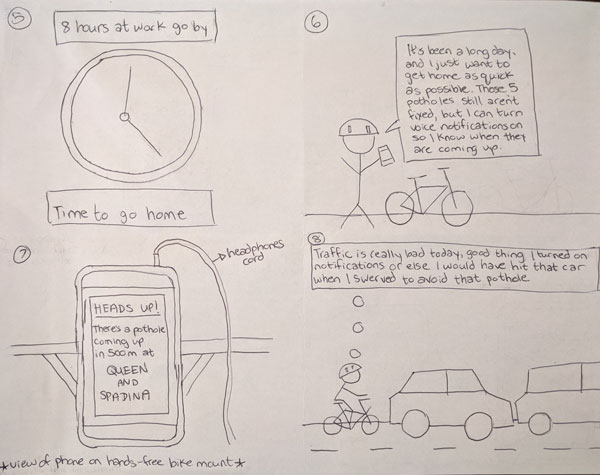 5
8 hours at work go by
Time to go home
6
It's been a long day,
and I just want to
get home as quick
as possible. Those 5
potholes still aren't
fixed, but I can turn
voice notifications on
so I know when they
are coming up.
7
headphones
cord
HEADS UP!
There's a pothole
coming up
in 500m at
QUEEN
AND
SPADINA
*view of phone on hands-free bike mount*
8
Traffic is really bad today, good thing I turned on
notifications or else I would have hit that car
when I swerved to avoid that pothole